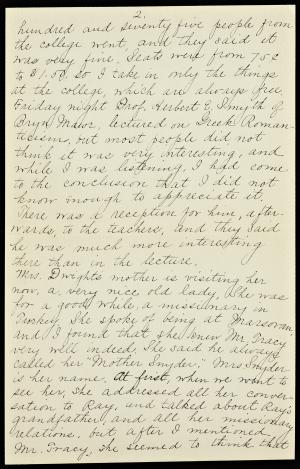 2.
hundred and seventy five people from
the college went, and they said it
was very fine. Seats were from 75¢
to $1.50 so I take in only the things
at the college, which are always free.
Friday night Prof. Herbert E. Smyth of
Bryn Mawr, lectured on Greek Roman-
ticism, but most people did not
think it was very interesting, and
while I was listening, I had come
to the conclusion that I did not
know inough to appreciate it.
There was a reception for him, after-
wards, to the teachers, and they said
he was much more interesting
there than in the lecture.
Mrs. Dwights mother is visiting her
now, a very nice old lady. She was
for a good while, a missionary in
Turkey. She spoke of being at Marsovan
and I found that she knew Mr. Tracy
very well indeed. She said he always
called her "Mother Snyder," Mrs Snyder
is her name. At first, when we went to
see her, she addressed all her conver-
sation to Ray, and talked about Ray's
grandfather, and all her missionary
relations, but after I mentioned
Mr. Tracy, she seemed to think that